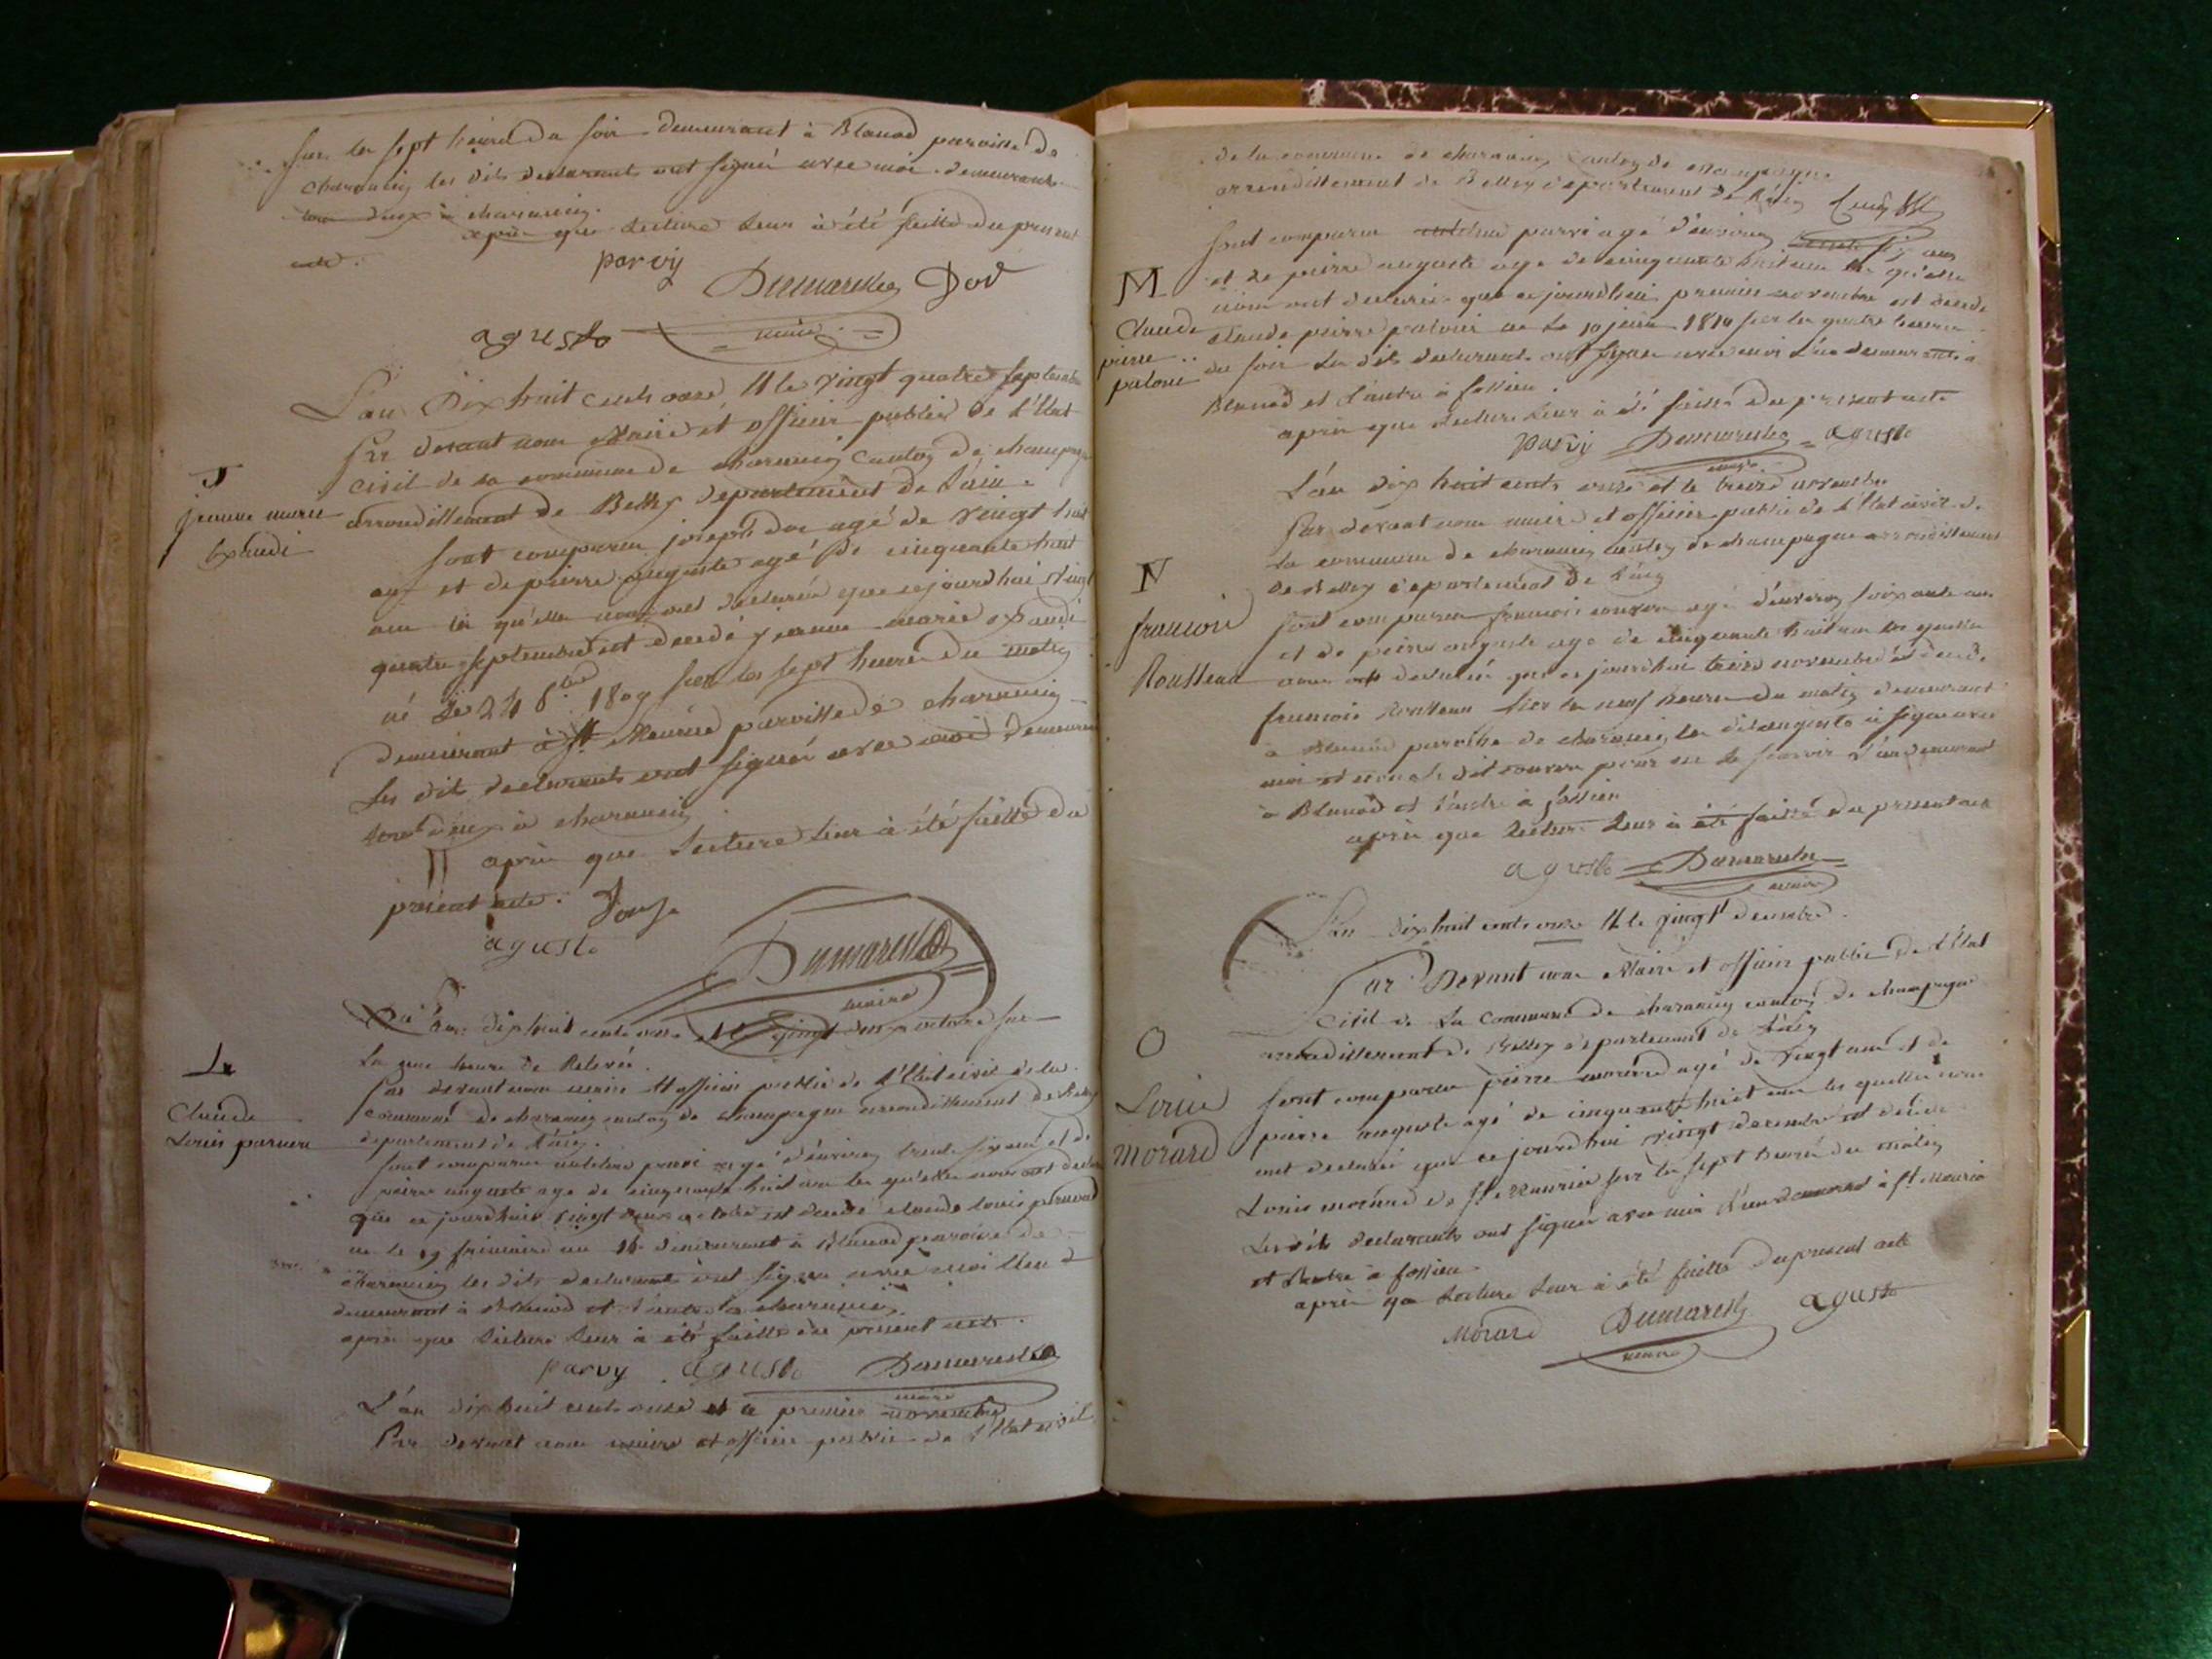 Sur les sept heures du soir demeurant à Blanod paroisse de
charancin les dits declarants ont signés avec moi demeurants
tous deux à charancin.
après que lecture leur à été faitte du present
acte.
parvy
Dumarest Dov
agusto maire
L'an Dix huit cents onze et le vingt quatre septembre
Par devant nous Maire et officier public de l'Etat
civil de la commune de charancin Canton de champagne
arrondissement de Belley departement de L'ain.
J
jeanne marie
sont comparu joseph Dov agé de vingt huit
ans et de pierre auguste agé de cinquante huit
ans les qu'elles nous ont declarés que cejourdhui vingt
quatre septembre est decedé jeanne marie
né le 24 8bre 1809 sur les sept heures du matin
demeurant à St Maurice paroisse de charancin
Les dits declarants ont signés avec moi demeurant
tous deux à charancin
après que lecture leur à été faitte du
présent acte.
agusto
Dumarest
maire
L'an dix huit cents onze et le vingt deux octobre sur
la une heure de Relevée.
Par devant nous maire et officier public de l'Etat civil de la
commune de charancin canton de champagne arrondissement de Belley
departement de L'ain.
L
Claude
Louis
sont comparu parvi agé d'environ trente six ans et de
pierre auguste agé de cinquante huit ans les qu'elles nous ont declarés
que ce jourdhui vingt deux octobre est decedé claude louis
né le 19 frimaire an demeurant à Blanod paroisse de
charancin les dits declarants ont signés avec moi l'un
demeurant à Blanod et l'autre à charancin.
après que lecture leur à été faitte du present acte.
parvy agusto Dumarest
maire
L'an dix huit cents onze et le premier novembre
Par devant nous maire et officier public de l'Etat civil
de la commune de charancin Canton de champagne
arrondissement de Belley departement de L'ain
sont comparu parvi agé d'environ ans
M
Claude
pierre
et de pierre auguste agé de cinquante huit ans les qu'elles
nous ont declarés que cejourdhui premier novembre est decedé
claude pierre né le 10 juin 1810 sur les quatre heures
du soir Les dits declarants ont signés avec moi L'un demeurant à
Blanod et l'autre à fossieu.
après que lecture leur à été faitte du present acte
parvy Dumarest agusto
maire
L'an dix huit cents onze et le treize novembre
Par devant nous maire et officier public de l'Etat civil de
la commune de charancin canton de champagne arrondissement
de Belley departement de L'ain
N
francois
Rousseau
sont comparu francois agé d'environ soixante ans
et de pierre auguste agé de cinquante huit ans les quelles
nous ont declarés que ce jourdhui treize novembre est decedé
francois Rousseau sur les neuf heures du matin demeurant
à Blanod paroisse de charancin les dit auguste à signé avec
moi et non le dit pour ne le scavoir L'un demeurant
à Blanod et l'autre à fossieu
après que lecture leur à été faitte du present acte
agusto Dumarest
maire
L'an dix huit cents onze et le vingt decembre.
Par Devant nous Maire et officier public de l'Etat
Civil de La Commune de charancin canton de champagne
arrondissement de Belley departement de L'ain
O
Louis
Morard
sont comparu pierre morard agé de vingt ans et de
pierre auguste agé de cinquante huit ans les quelles nous
ont declarés que ce jourdhui vingt decembre est decedé
Louis morard de St Maurice sur les sept heures du matin
Les dits declarants ont signés avec moi L'un demeurant à St Maurice
et l'autre à fossieu.
après que Lecture leur à été faitte du present acte
Morard Dumarest agusto
maire